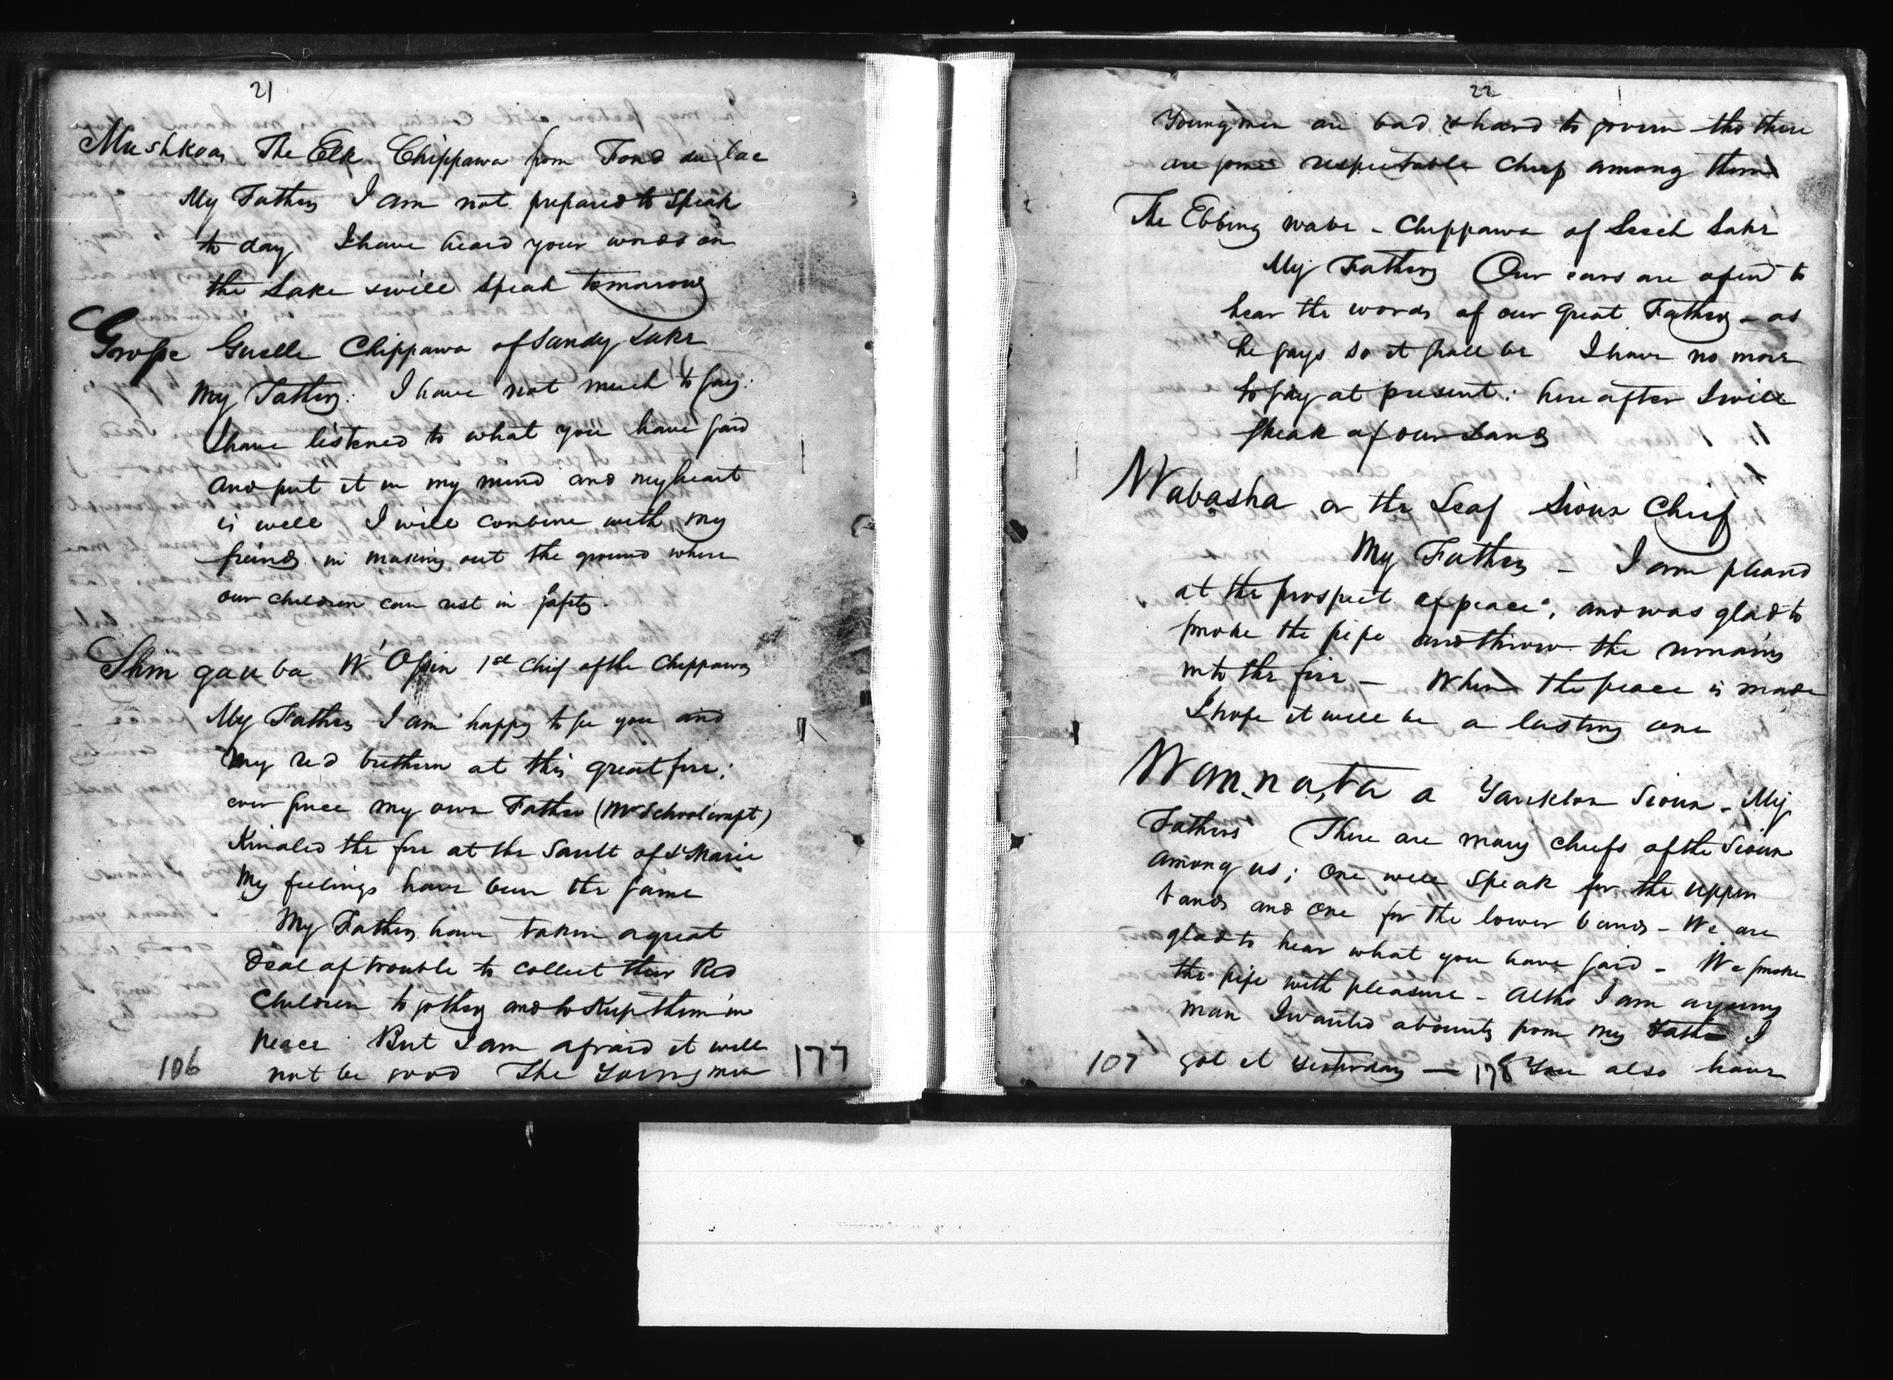 21
Mushkoas The Elk Chippawa from Fond du lac
My Fathers I am not prepared to speak
to day I have heard your words on
the Lake & will speak tomorrow
Grosse Guelle Chippawa of Sandy Lake
My Fathers: I have not much to say:
I have listened to what you have said
and put it in my mind and my heart
is well I will combine with my
freinds in making out the ground where
our children can rest in safety.
Shin gau ba W'Ossin 1st Chief of the Chippawas
My Fathers I am happy to see you and
my red brethern at this great fire;
ever since my own Father (Mr Schoolcraft)
Kindled the fire at the Sault of St Marie
My feelings have been the same
My Fathers have taken a great
Deal of trouble to collect their Red
Children together and to keep them in
peace But I am afraid it will
not be good The Young men
106
177
22
Young men are bad & hard to govern tho there
are some respectable chiefs among them
The Ebbing wave - Chippawa of Leech Lake
My Fathers Our ears are open to
hear the words of our great Fathers - as
he says so it shall be I have no more
to say at present: here after I will
speak of our Lands
Wabasha or the Leaf Sioux Chief
My Fathers - I am pleased
at the prospect of peace; and was glad to
smoke the pipe and throw the remains
into the fire - When the peace is made
I hope it will be a lasting one
Wan-na-ta a Yankton Sioux - My
Fathers There are many chiefs of the Sioux
among us; one will speak for the upper
bands and one for the lower bands - We are
glad to hear what you have said - We smoke
the pipe with pleasure - Altho I am a young
man I wanted a bounty from my Father I
107 got it yesterday - 178 You also have